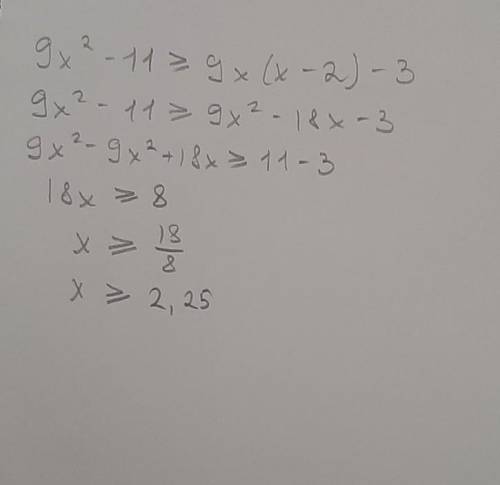 9x² - 11 ⩾ 9x(x - 2) - 3
9x² - 11 ⩾ 9x² - 18x - 3
9x² - 9x² + 18x ⩾ 11 - 3
18x ⩾ 8
x ⩾ 18/8
x ⩾ 2,25